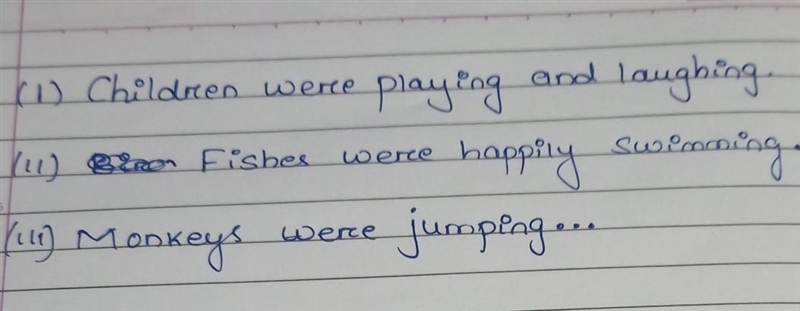 (i) Children were playing and laughing.
(ii) Fishes were happily swimming.
(iii) Monkeys were jumping...